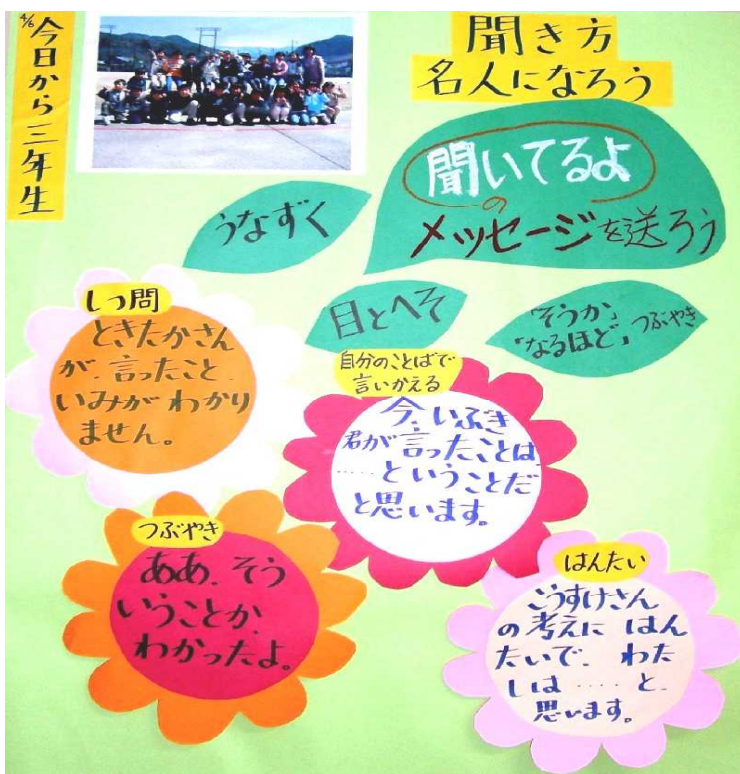 4/6
今日から三年生
聞き方
名人になろう
聞いてるよ
の
メッセージを送ろう
うなずく
目とへそ
「そうか」
「なるほど」つぶやき
しつ問
ときたかさん
が、言ったこと、
いみがわかり
ません。
自分のことばで
言いかえる
今、いぶき
君が言ったことは、
……ということだ
と思います。
つぶやき
ああ、そう
いうことか、
わかったよ。
はんたい
こうすけさん
の考えに はん
たいで、わた
しは……と、
思います。